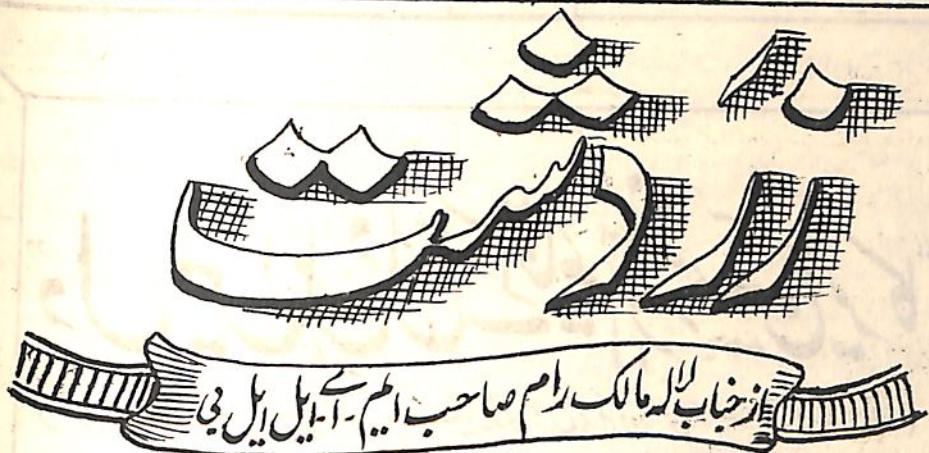 زَردشت
از جناب لالہ مالک رام صاحب ایم۔اے۔ایل ایل بی